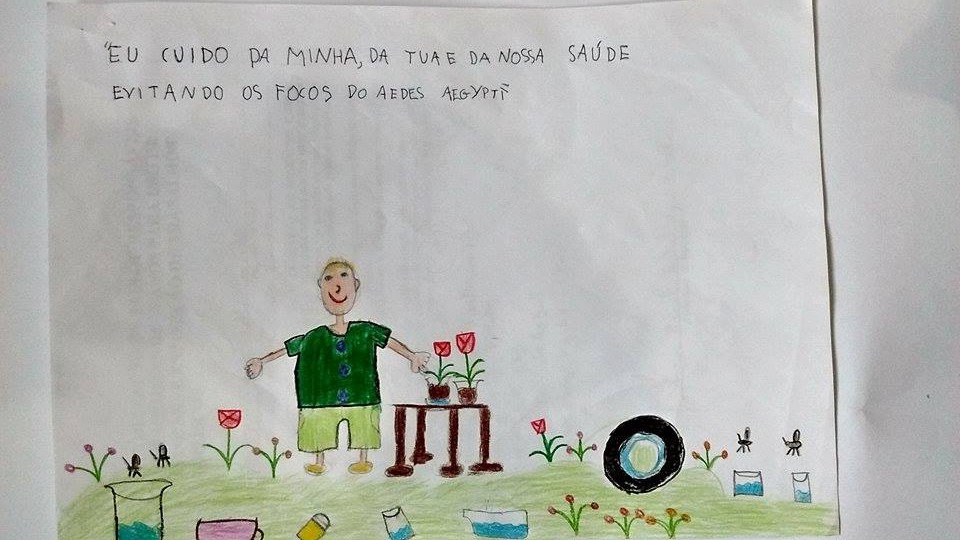 "EU CUIDO DA MINHA, DA TUA E DA NOSSA SAÚDE
EVITANDO OS FOCOS DO AEDES AEGYPTI"